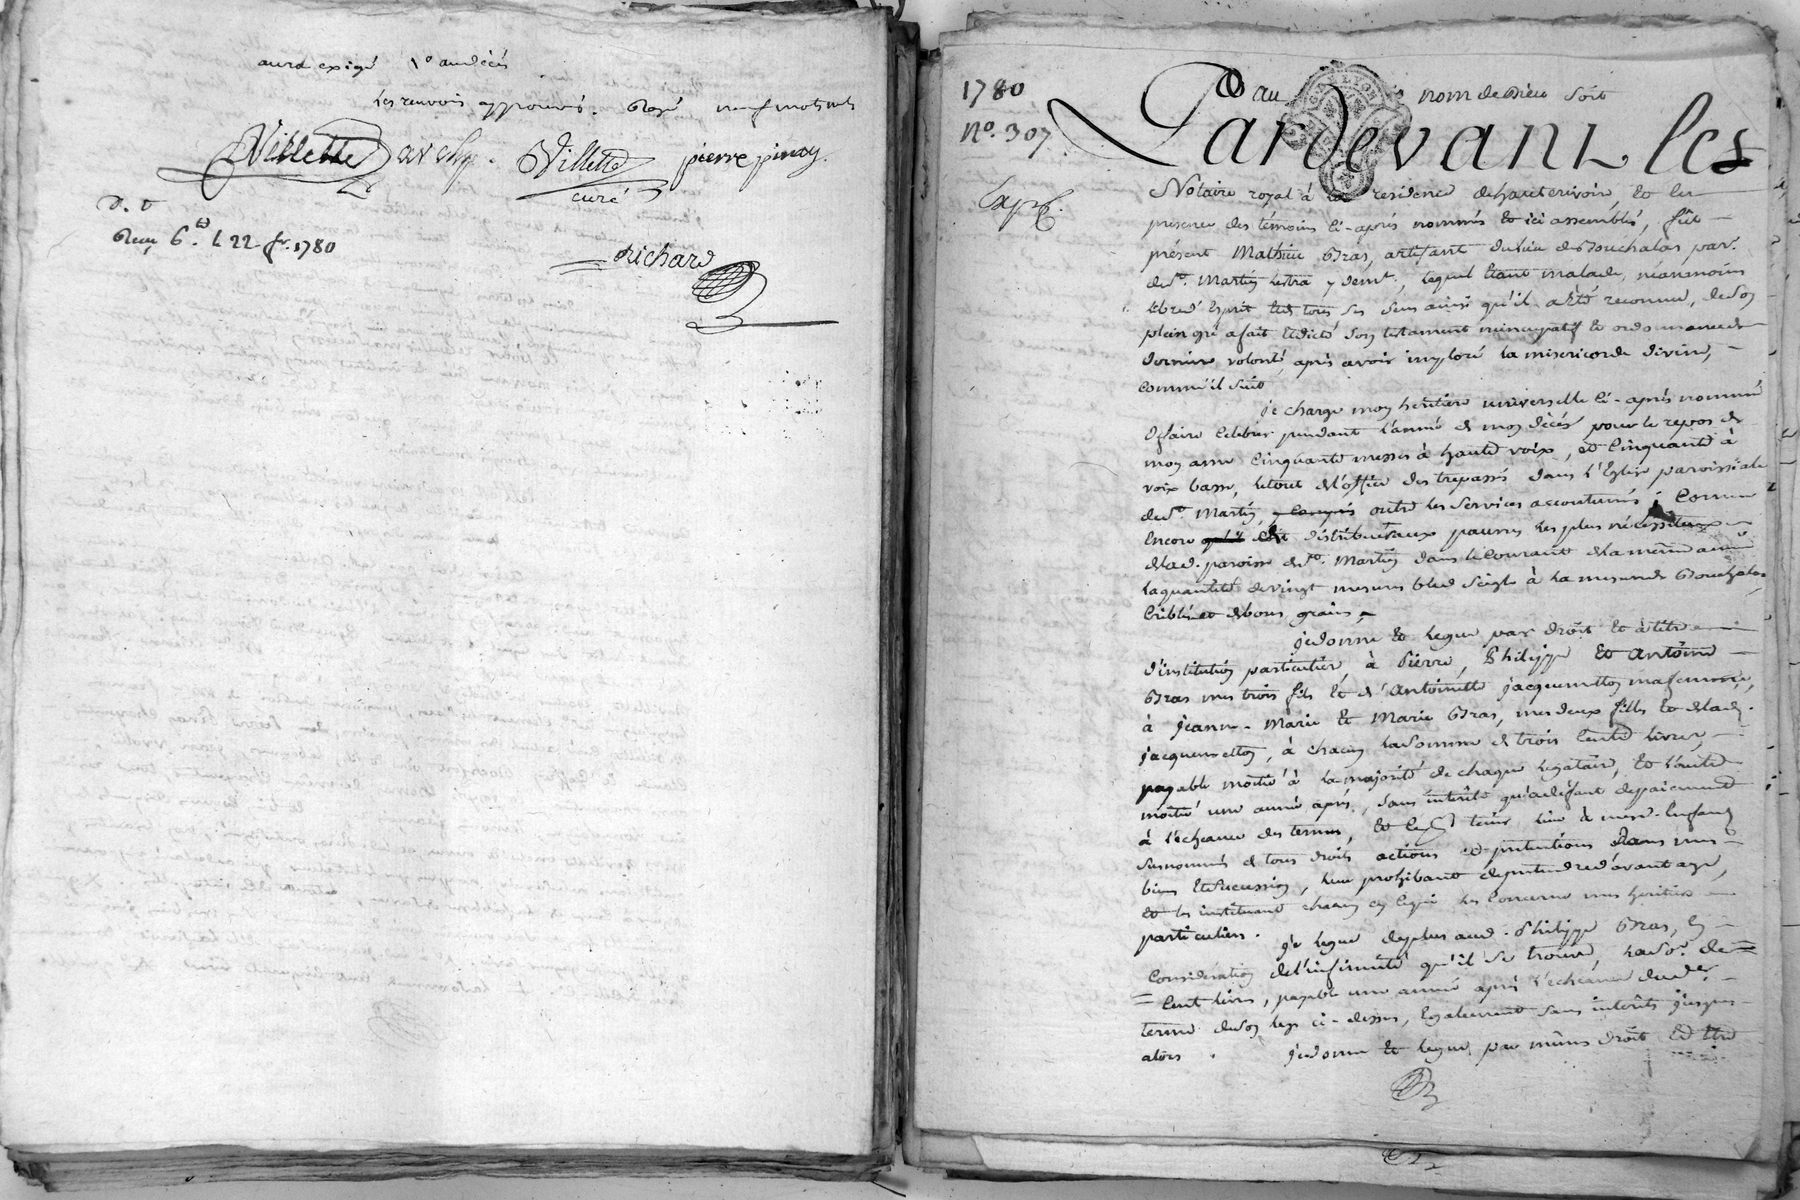 aura exigé
les renvois approuvés. Rayé neuf mots nuls
Villette
Villette pierre pinay
curé
D. t
Reçu 6 le 22 fr. 1780
Richard
1780
N°. 307
au nom de Dieu soit
Pardevant les
Notaire royal à la residence de hauterivoire, et en
presence des temoins ci-après nommés et ici assemblés, fut
présent Mathieu Gras, artisant du lieu de Bouchalas par.
de St. Martin lestra y demt., lequel étant malade, néanmoins
libre d'esprit et de tous ses sens ainsi qu'il a été reconnu, de son
plein gré a fait et dicté son testament nuncupatif et ordonnance de
derniere volonté, après avoir imploré la misericorde divine,
comme il suit
je charge mon heritiere universelle ci-après nommé
de faire celebrer pendant l'année de mon décès pour le repos de
mon ame cinquante messes à haute voix, et cinquante à
voix basse, le tout de l'office des trepassés dans l'Eglise paroissiale
de St. Martin, y compris outre les services accoutumés; comme
encore distribuer aux pauvres les plus nécessiteux
de lad. paroisse de St. Martin dans le courant de la même année
la quantité de vingt mesures bled seigle à la mesure de Bouchalas
criblé et de bons grains,
je donne et legue par droit et à titre
d'institution particulier, à Pierre, Philippe et Antoine
Gras mes trois fils et d'Antoinette jacquemetton ma femme,
à jeanne-Marie et Marie Gras, mes deux filles et de lad.
jacquemetton, à chacun la somme de trois cents livres,
payable moitié à la majorité de chaque legataire, et l'autre
moitié une année après, sans intérêts qu'à deffaut de paiement
à l'echeance des termes, et ce tenir lieu à mesd. enfans
susnommés de tous droits actions et pretentions dans mes
biens et succession, leur prohibant de pretendre d'avantage,
et les instituant chacun en ce qui les concerne mes heritiers
particuliers.
je legue de plus aud. Philippe Gras, en
consideration de l'infirmité qu'il se trouve, la so. de
cent livres, payable une année après l'echeance du der.
terme de son legs ci-dessus, egalement sans intérêts jusques
alors. je donne et legue par mêmes droit et titre